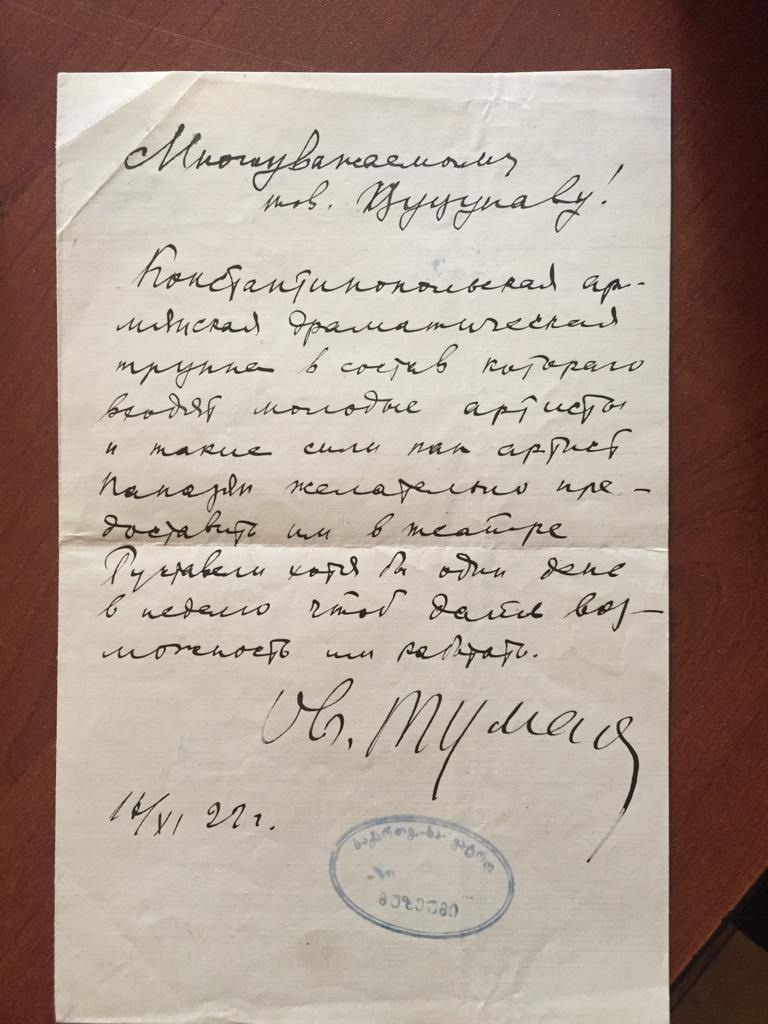 Многоуважаемому
тов. Цуцунаву!
Константинопольская ар-
мянская драматическая
труппа в состав котораго
входят молодые артисты
и такие сили как артист
Папазян желательно пре-
доставить им в театре
Руставели хотя бы один день
в неделю чтоб дать воз-
можность им работать.
Ов. Туман
/XI 22 г.